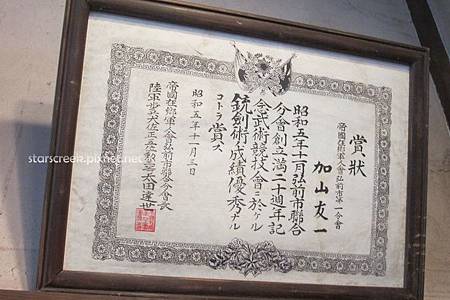 賞狀
帝國在郷軍人會弘前市第一分會
加山友一
昭和五年十一月弘前市聯合
分會創立滿二十週年記
念武術競技會ニ於ケル
銃劍術ノ成績優秀ナル
コトヲ賞ス
昭和五年十一月三日
帝國在郷軍人會弘前市聯合分會長
陸軍
starscreek.pixnet.net